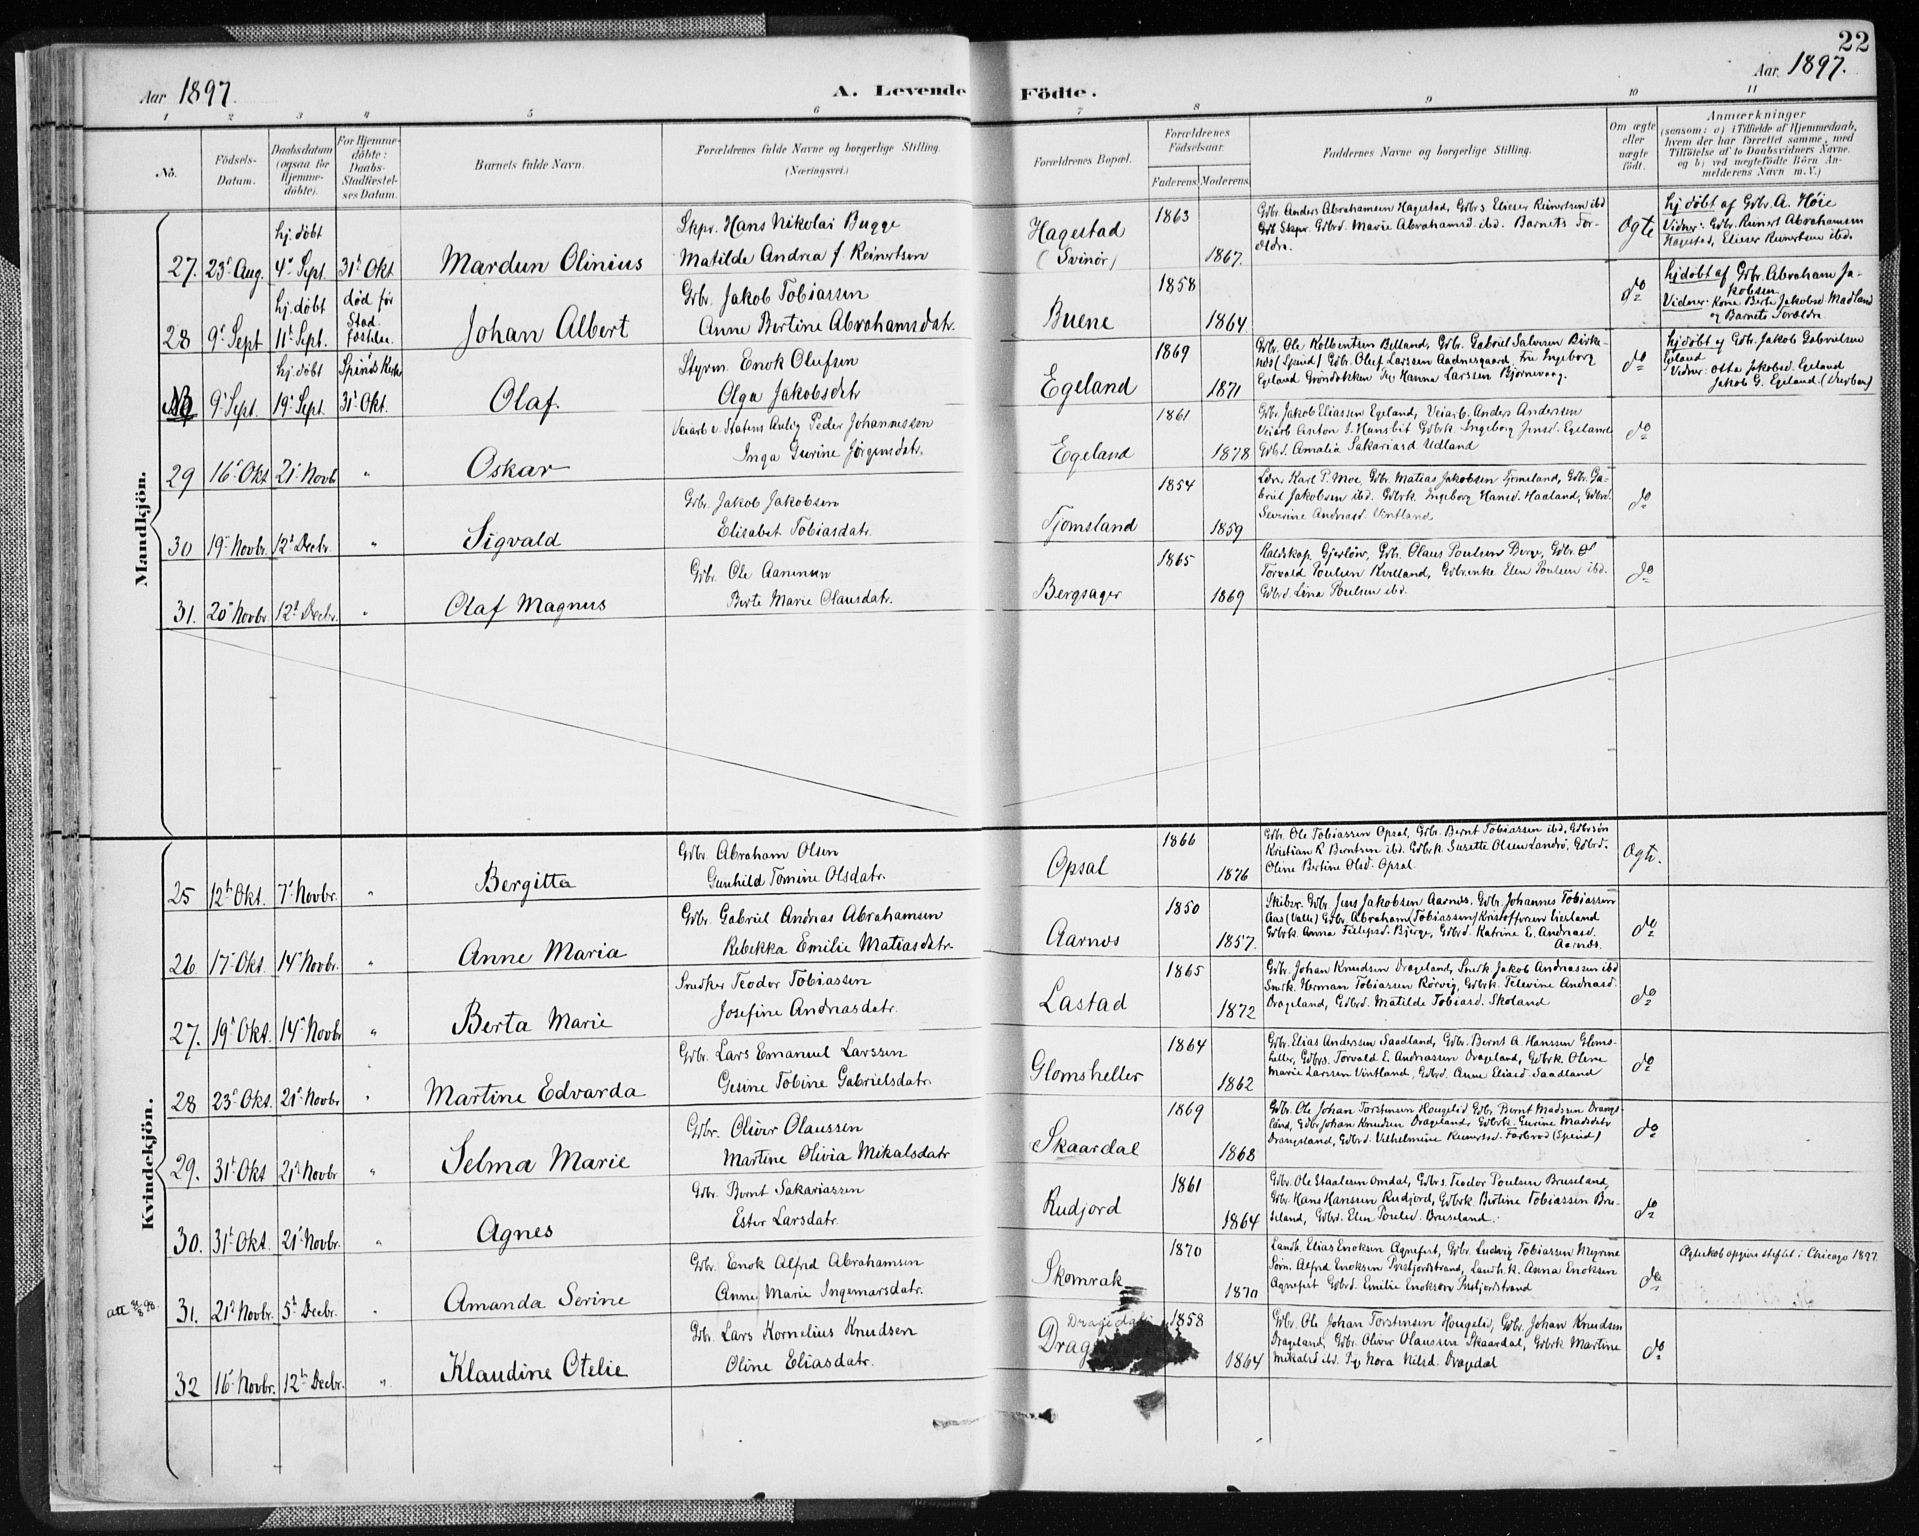 22
Aar 1897.
A. Levende Födte.
Aar. 1897.
1 2 3 4 5 6 7 8 9 10 11
No.
Födsels-Datum.
Daabsdatum (ogsaa for Hjemmedöbte).
For Hjemmedöbte: Daabs-Stadfæstelses Datum.
Barnets fulde Navn.
Forældrenes fulde Navne og borgerlige Stilling. (Næringsvei.)
Forældrenes Bopæl.
Forældrenes Födselsaar.
Faderens. Moderens.
Faddernes Navne og borgerlige Stilling.
Om ægte eller uægte födt.
Anmærkninger (saasom: a) i Tilfælde af Hjemmedaab, hvem der har forrettet samme, med Tilföielse af to Daabsvidners Navne, og b) ved uægtefödte Börn Anmelderens Navn m. V.)
Mandkjön.
27. 23' Aug. hj. döbt 4' Sept. 31' Okt Mardun Olinius
Skpr. Hans Nikolai Bugge
Matilde Andrea f. Reinertsen
Hagestad (Svinör) 1863 1867.
Gbr. Anders Abrahamsen Hagestad, Gdbrs. Elieser Reinertsen ibd
Skpr. Gdbrd. Marie Abrahamsd. ibd. Barnets Forældre.
Ogte
hj döbt af Gdbr. A. Höie
Vidner: Gdbr. Reinert Abrahamsen
Hagestad, Elieser Reinertsen ibd.
28 9' Sept hj. döbt 11' Sept. död för Stadfæstelse Johan Albert
Gdbr. Jakob Tobiassen
Anne Bertine Abrahamsdatr.
Buene 1858 1864 do
hjdöbt af Gdbr. Abraham Jakobsen
Vidner: Kone Berte Jakobsd Madland
og Barnets Forældre
9' Sept. hj. döbt 19' Sept. Spinds Kirke 31' Okt. Olaf.
Styrm. Enok Olufsen
Olga Jakobsdatr
Egeland 1869 1871
Gdbr. Ole Kolbentsen Belland, Gdbr. Gabriel Salvesen Birke-
(Spind) Gdbr. Oluf Larssen Aadnesgaard, Fru Ingeborg
Egeland Grøndokken Pig Hanna Larssen Bjørnevaag.
do
hjdöbt af Gdbr. Jakob Gabrielsen
Egeland
Vidner: Otta Jakobsd. Egeland
Jakob G. Egeland
29 16' Okt 21' Novb " Oskar
Veiarb v. Statens Anlæg Peder Johannessen
Inga Gurine Jörgensdatr.
Egeland 1861 1878
Gdbr. Jakob Eliassen Egeland, Veiarb. Anders Andersen
Veiarb Anton J. Gdbrk. Ingeborg Jensd. Egeland
Gdbrd. Amalia Sakariasd Udland
do
30 19' Novbr. 12' Decbr. " Sigvald
Gdbr. Jakob Jakobsen
Elisabet Tobiasdatr.
Tjomsland 1854 1859
Lærer Karl P. Moe, Gdbr. Matias Jakobsen Tjomsland, Gdbr. Ga-
briel Jakobsen ibd. Gdbrk. Ingeborg Hansd. Haaland, Gdbrd.
Severine Andreasd. Vintland
do
31. 20' Novbr 12' Decbr. " Olaf Magnus
Gdbr. Ole Aanensen
Berte Marie Olausdatr.
Bergsager 1865 1869
Kaldskap. Gjerlöw, Gdbr. Olaus Poulsen Berge, Gdbr.
Torvald Poulsen Kvilland, Gdbrenke Elen Poulsen ibd.
Gdbrd. Lina Poulsen ibd.
do
Kvindekjön.
25 12' Okt. 7' Novbr. " Bergitta
Gdbr. Abraham Olsen
Gunhild Tomine Olsdatr.
Opsal 1866 1876
Gdbr. Ole Tobiassen Opsal, Gdbr. Bernt Tobiassen ibd, Gdbrsön
Kristian R. Berntsen ibd. Gdbrk. Susette Olsen Landrö, Gdbrd.
Oline Bertine Olsd. Opsal
Ogte.
26 17' Okt. 14' Novbr. " Anne Maria
Gdbr. Gabriel Andreas Abrahamsen
Rebekka Emilie Matiasdatr.
Aarnes 1850 1857.
Skibsr. Gdbr Jens Jakobsen Aarnes. Gdbr. Johannes Tobiassen
Aas (Valle) Gdbr. Abraham (Tobiassen) Kristoffersen Eierland
Gdbrk. Anna Filipsd. Bjerge, Gdbrd. Katrine E. Andreasd.
Aarnæs.
do
27. 19' Okt. 14' Novbr " Berta Marie
Snedker Teodor Tobiassen
Josefine Andreasdatr.
Lastad 1865 1872
Gdbr. Johan Knudsen Drageland, Snedk Jakob Andreassen ibd
Snedk. Herman Tobiassen Rörvig, Gdbrk. Televine Andreasd.
Drageland, Gdbrd. Matilde Tobiasd. Skoland
do
28 23' Okt. 21' Novbr " Martine Edvarda
Gdbr. Lars Emanuel Larssen
Gesine Tobine Gabrielsdatr.
Glomsheller 1864 1862
Gdbr. Elias Andersen Saadland, Gdbr. Bernt A. Hanssen Gloms-
heller, Gdbrs. Torvald E. Andreassen Drageland, Gdbrk. Oline
Marie Larssen Vintland, Gdbrd. Anne Eliasd. Saadland
do
29. 31' Okt 21' Novbr " Selma Marie
Gdbr. Oliver Olaussen
Martine Olivia Mikalsdatr
Skaardal 1869 1868
Gdbr. Ole Johan Torstensen Hougelid Gdbr. Bernt Madssen Drangs-
land, Gdbr Johan Knudsen Drageland, Gdbrk. Gurine Madsdatr
Drangsland, Gdbrd. Vilhelmine Reinertsd. Farbrod (Spind)
do
30. 31' Okt. 21' Novbr. " Agnes
Gdbr. Bernt Sakariassen
Ester Larsdatr.
Rudjord 1861 1864
Gdbr. Ole Staalesen Omdal, Gdbrs. Teodor Poulsen Bruseland,
Gdbr. Hans Hanssen Rudjord, Gdbrk Bertine Tobiassen Bru-
seland, Gdbrd. Elen Poulsd. Bruseland.
do
31. 21' Novbr. 5' Decbr. " Amanda Serine
Gdbr. Enok Alfred Abrahamsen
Anne Marie Ingemarsdatr.
Skomrak 1870 1870
Landh. Elias Enoksen Agnefest, Gdbr. Ludvig Tobiassen Meprine
Söm. Alfred Enoksen Rosfjordstrand, Landh.k. Anna Enoksen
Agnefest Gdbrd. Emilie Enoksen Rosfjordstrand
do
Ægteskab opgives stiftet i Chicago 1897
att
32 16' Novbr. 12' Decbr. " Klaudine Otelie
Gdbr. Lars Kornelius Knudsen
Oline Eliasdatr.
Dragedal
Drag
1858 1864
Gdbr. Ole Johan Torstensen Hougelid, Gdbr. Johan Knudsen
Drageland, Gdbr. Oliver Olaussen Skaardal, Gdbrk Martine
Mikalsd ibd. Pig Nora Nilsd. Dragedal
do